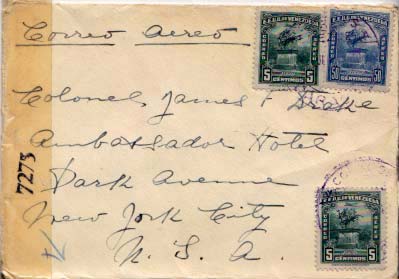 Correo Aereo
E.E.U.U. DE VENEZUELA
CORREO AEREO
5 5
CENTIMOS
E.E.U.U. DE VENEZUELA
CORREO AEREO
50 50
CENTIMOS
Colonel James F Drake
Ambassador Hotel
Park Avenue
New York City
U. S. A.
7273
E.E.U.U. DE VENEZUELA
CORREO AEREO
5 5
CENTIMOS